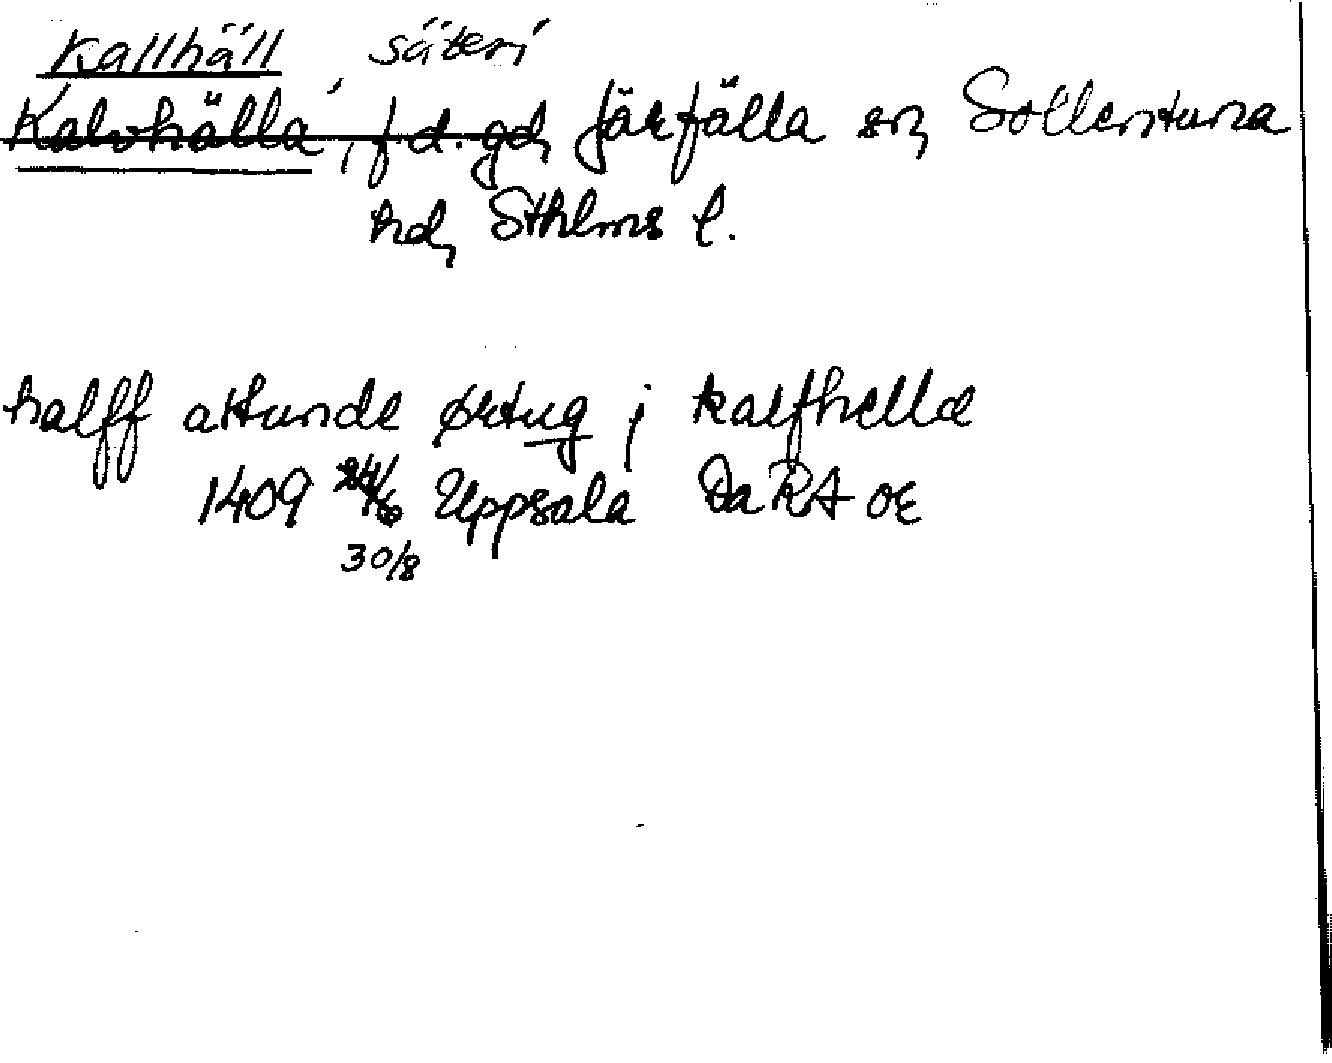 Kallhäll, säteri
Kalvhälla, f.d. gd, Järfälla sn, Sollentuna
hd, Sthlms l.
halff attunde ørtug j kalfhellæ
1409 24/6 Uppsala DaRA OE
30/8